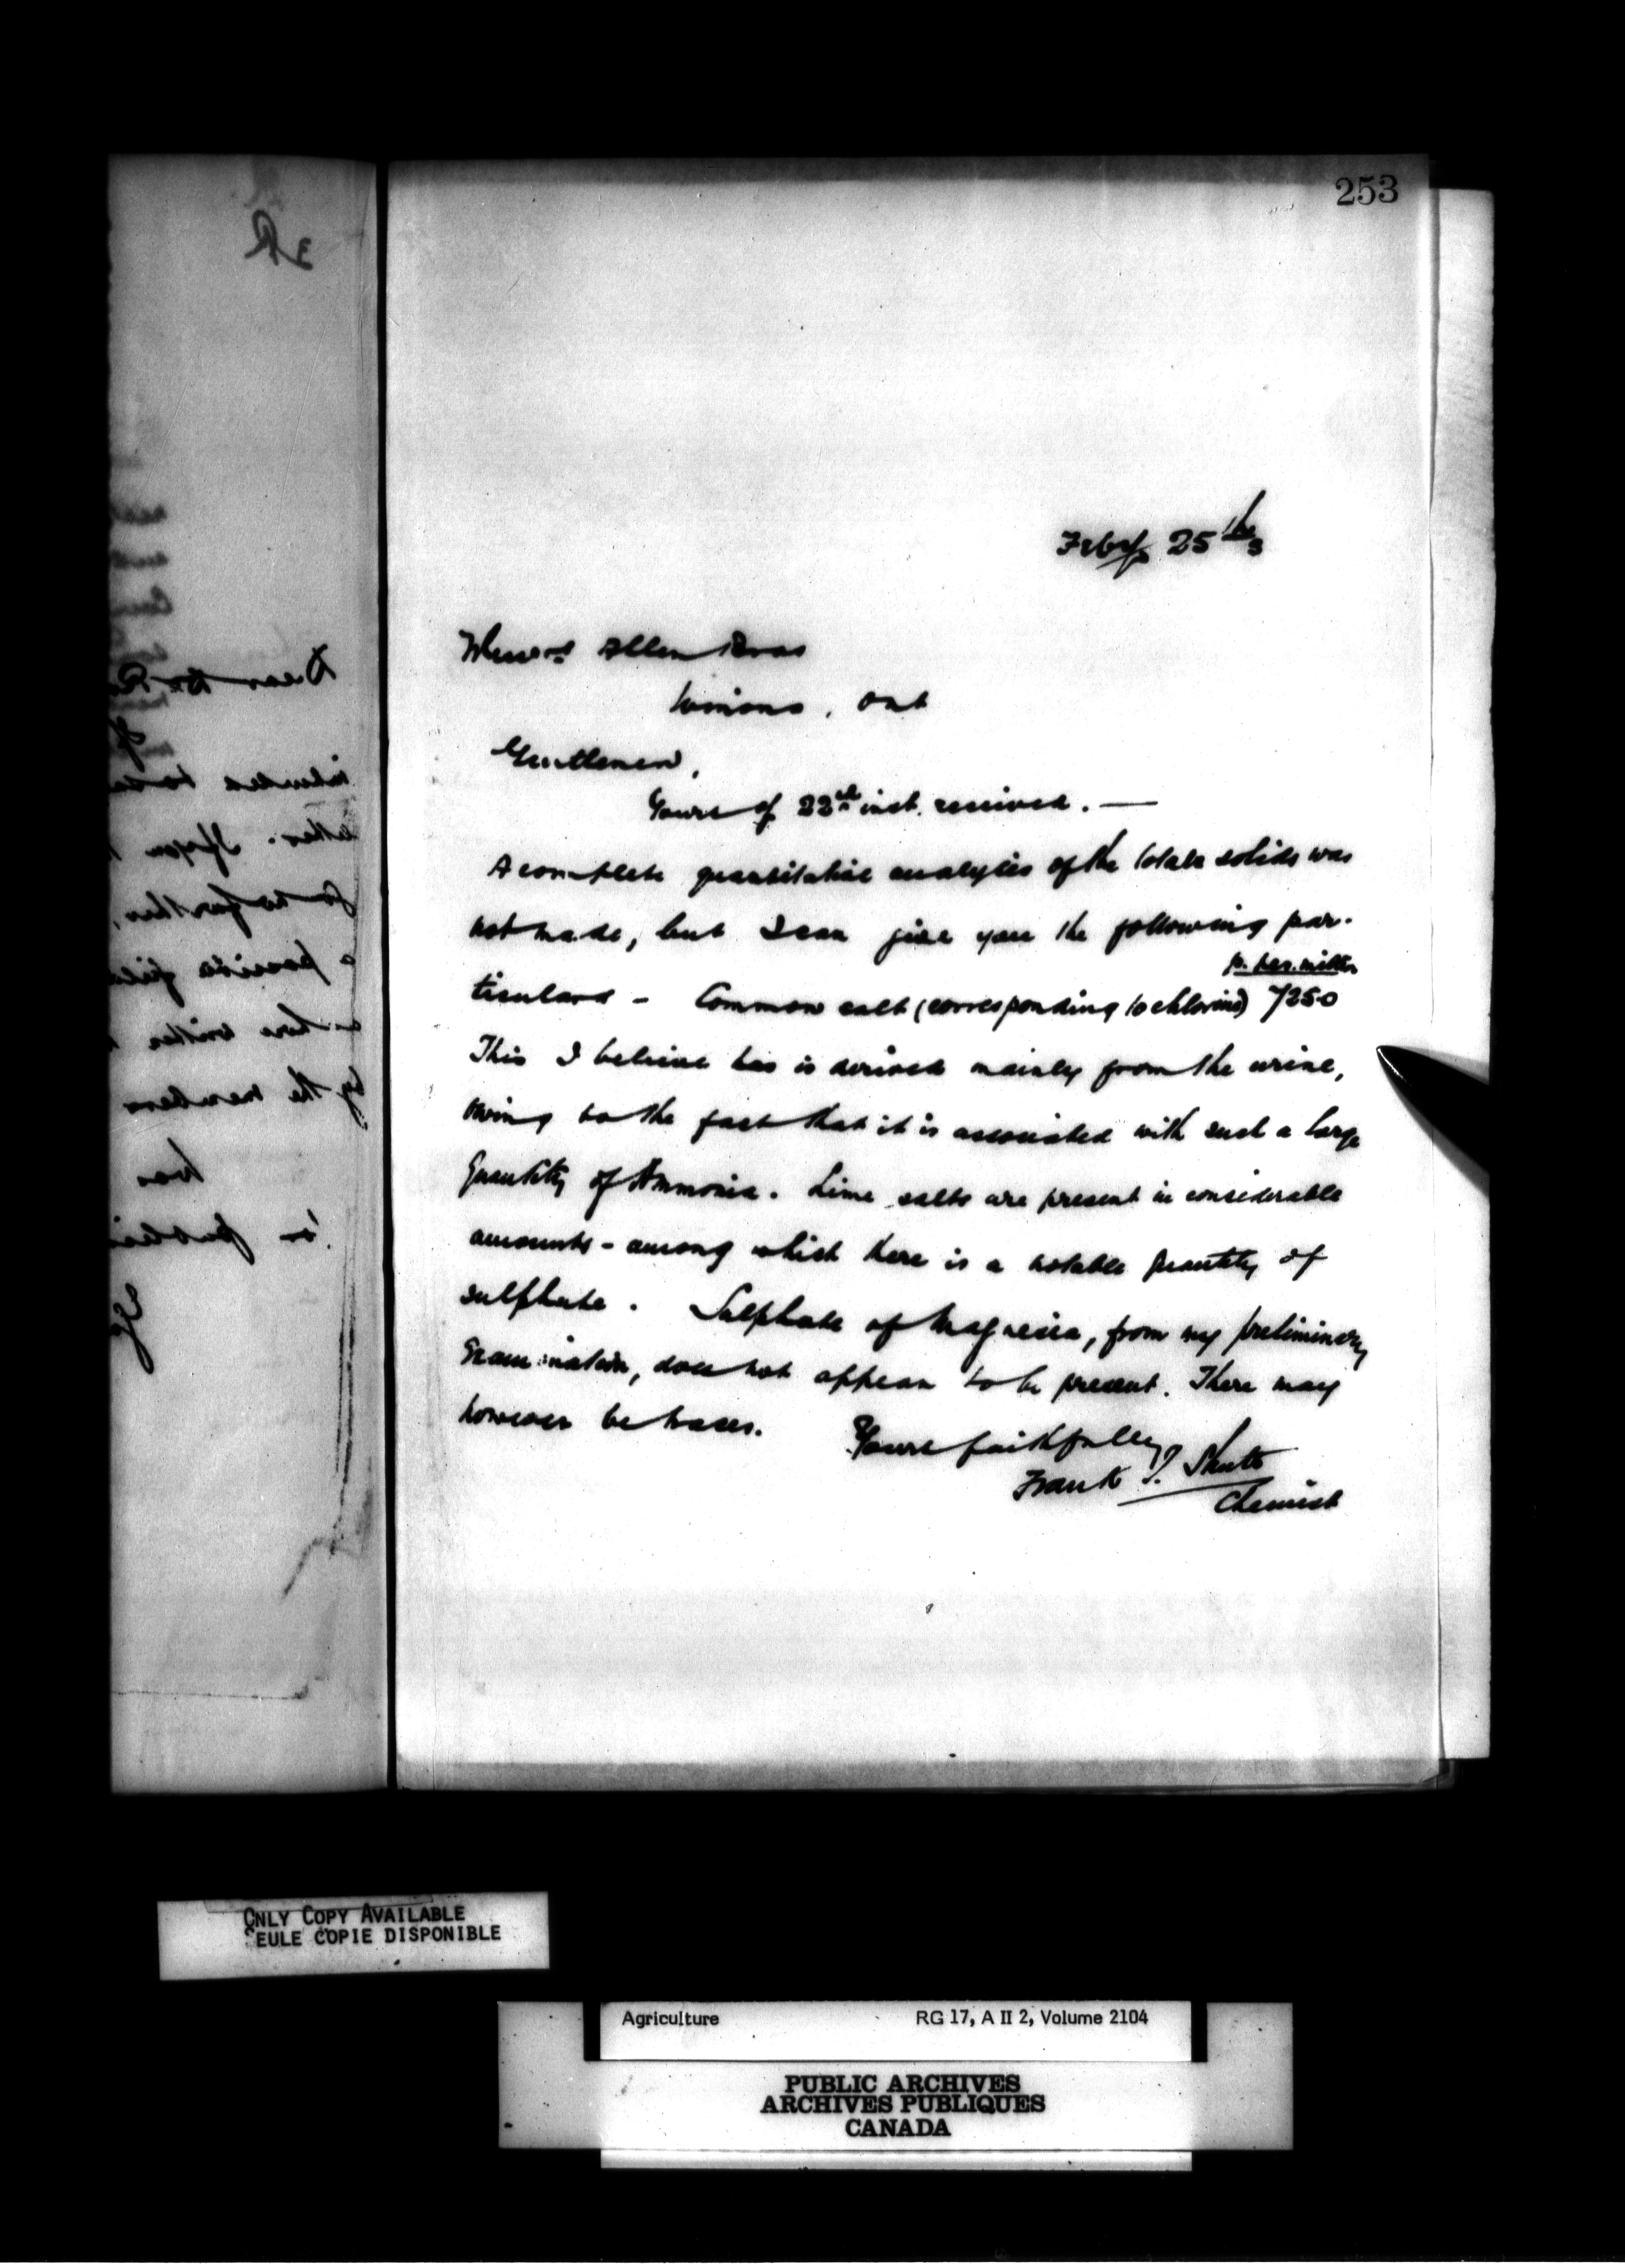 253
Feby 25th 3
Messrs Allen Bros
Winona, Ont
Gentlemen,
Yours of 22nd inst. received. —
A complete quantitative analysis of the total solids was
not made, but I can give you the following par-
p. per. million
ticulars - Common salt (corresponding to chlorine) 7250
This I believe has is derived mainly from the urine,
owing to the fact that it is associated with such a large
quantity of Ammonia. Lime salts are present in considerable
amounts - among which there is a notable quantity of
sulphate. Sulphate of Magnesia, from my preliminary
examination, does not appear to be present. There may
however be traces.
Yours faithfully
Frank T. Shutt
Chemist
ONLY COPY AVAILABLE
SEULE COPIE DISPONIBLE
Agriculture RG 17, A II 2, Volume 2104
PUBLIC ARCHIVES
ARCHIVES PUBLIQUES
CANADA